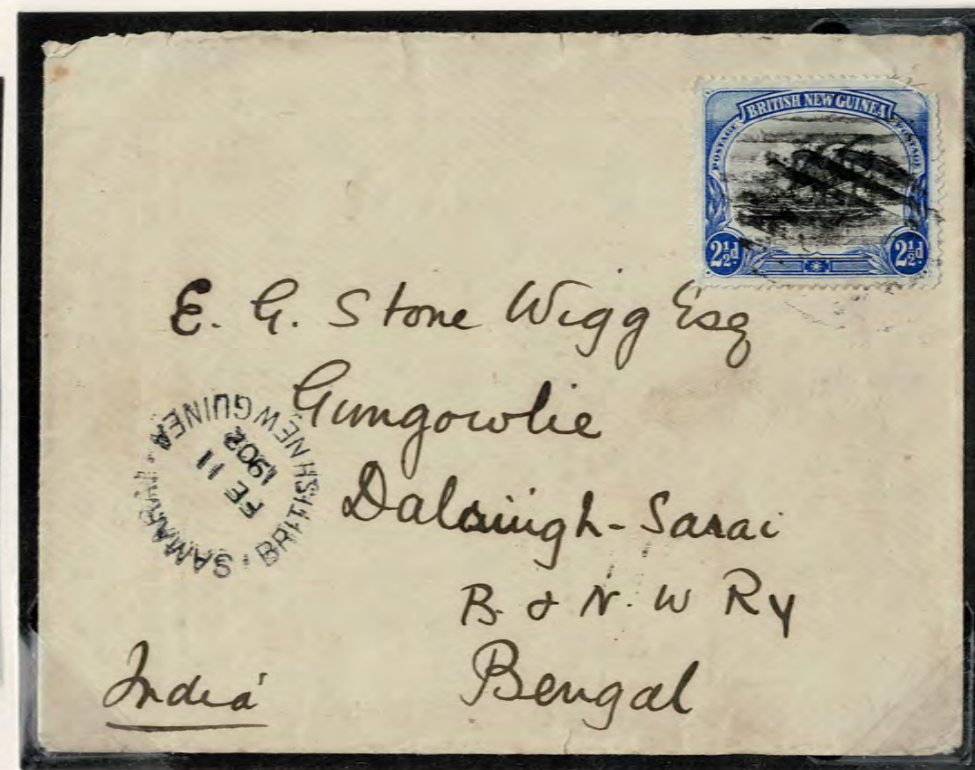 BRITISH NEW GUINEA
POSTAGE POSTAGE
2½d. 2½d.
E. G. Stone Wigg Esq
Gungowlie
Dalsingh-Sarai
B. & N. W Ry
Bengal
India
SAMARAI · BRITISH NEW GUINEA
FE 11
1902